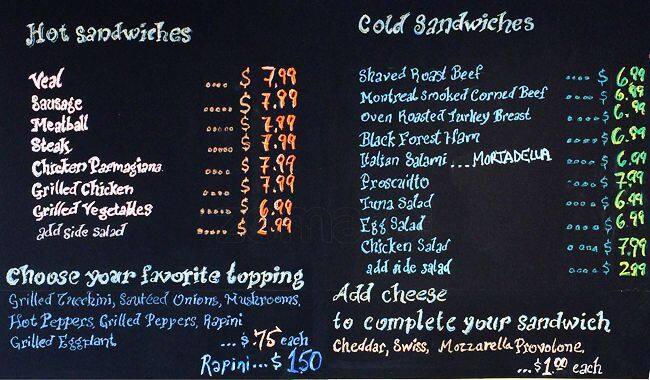 Hot sandwiches
Veal .... $ 7.99
Sausage ..... $ 7.99
Meatball ..... $ 7.99
Steak ..... $ 7.99
Chicken Parmagiana ..... $ 7.99
Grilled Chicken ..... $ 7.99
Grilled Vegetables ..... $ 6.99
add side salad ..... $ 2.99
Choose your favorite topping
Grilled Zucchini, Sautéed Onions, Mushrooms,
Hot Peppers, Grilled Peppers, Rapini
Grilled Eggplant ... $ .75 each
Rapini... $ 1.50
Cold Sandwiches
Shaved Roast Beef .... $ 6.99
Montreal Smoked Corned Beef .... $ 6.99
Oven Roasted Turkey Breast .... $ 6.99
Black Forest Ham .... $ 6.99
Italian Salami ... MORTADELLA .... $ 6.99
Proscuitto .... $ 7.99
Tuna Salad .... $ 6.99
Egg Salad .... $ 6.99
Chicken Salad .... $ 7.99
add side salad .... $ 2.99
Add cheese
to complete your sandwich
Cheddar, Swiss, Mozzarella Provolone,
...$1.00 each